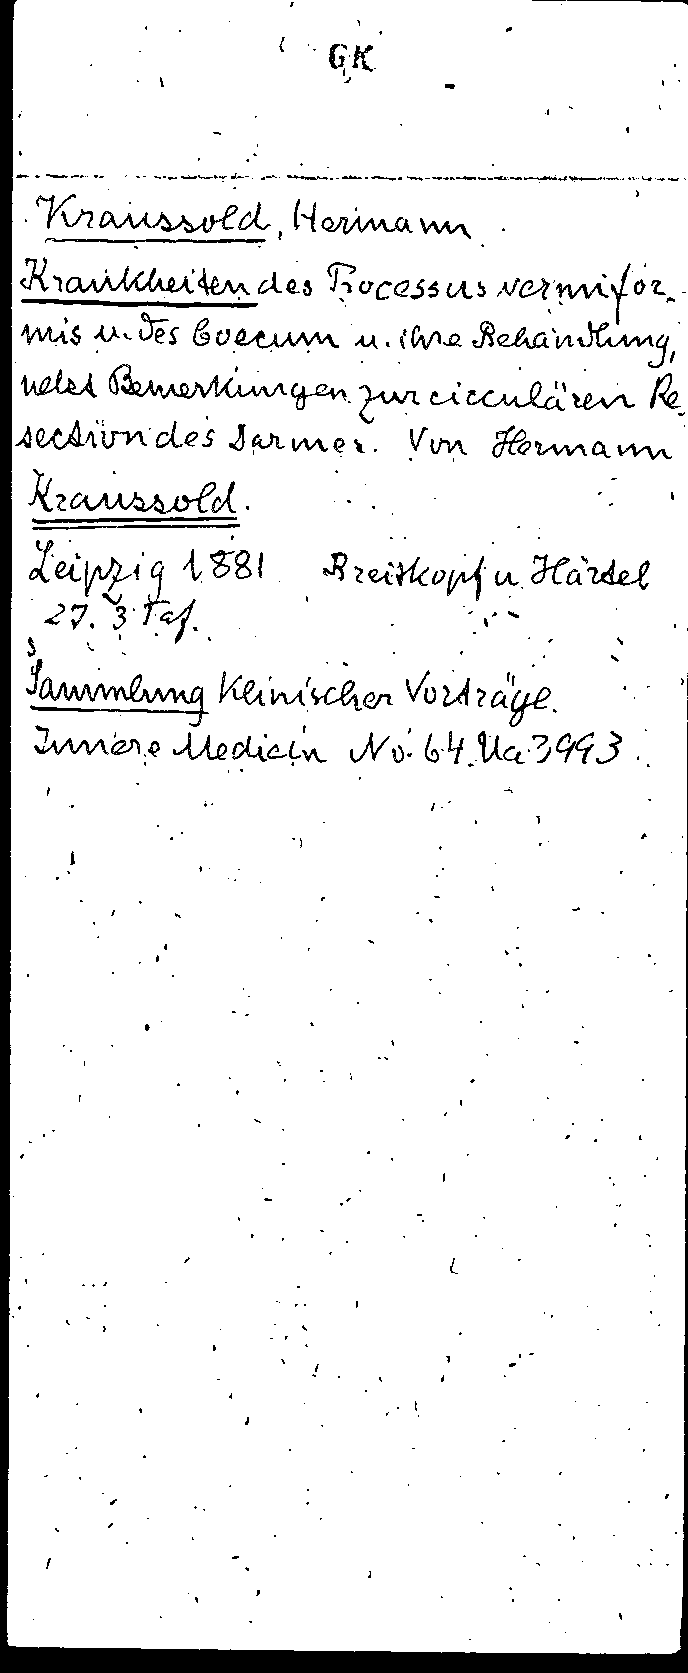 GK
Kraussold, Hermann
Krankheiten des Processus vermifor-
mis u. des Coecum u. ihre Behandlung,
nebst Bemerkungen zur circulären Re-
section des Darmes. Von Hermann
Kraussold.
Leipzig 1881 Breitkopf u. Härtel
3 Taf.
Sammlung klinischer Vorträge.
Innere Medicin No. 64. Ua 3993